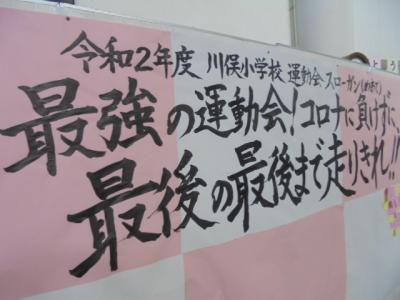 令和2年度 川俣小学校 運動会スローガン(めあて)
最強の運動会!コロナに負けずに、
最後の最後まで走りきれ!!